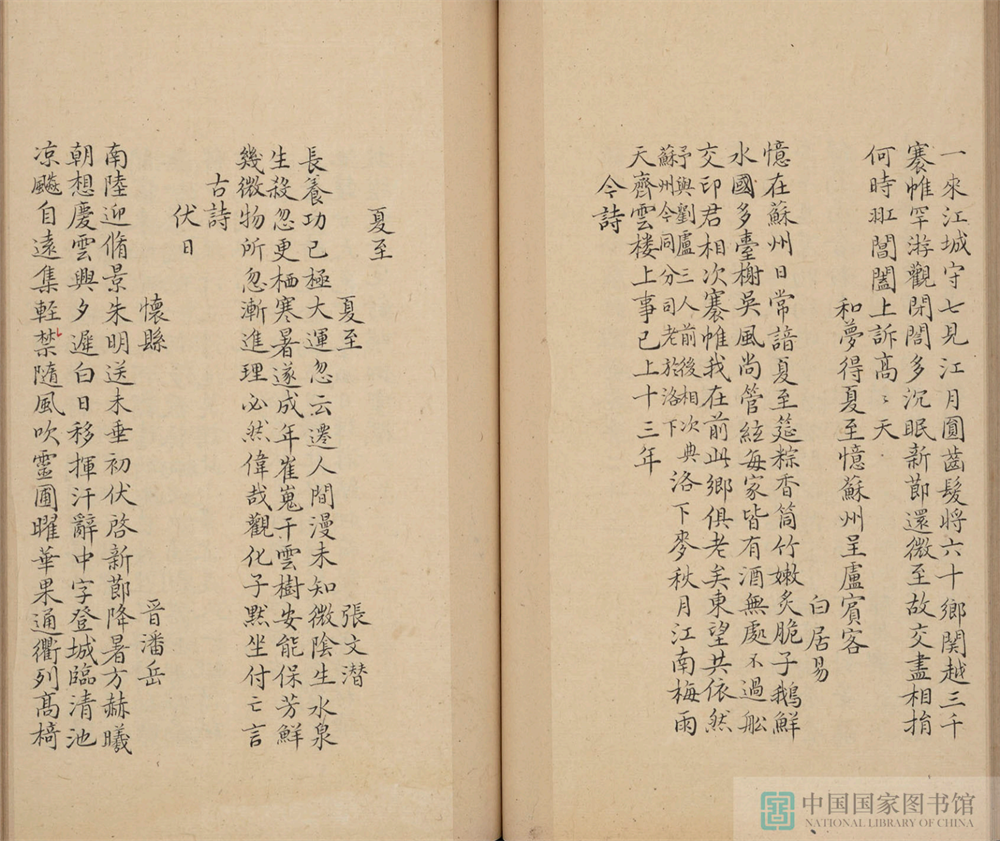 一來江城守七見江月圓齒髮將六十鄉関越三千
褰帷罕游觀閉閤多沉眠新節還微至故交盡相捐
何時羾閶闔上訴髙〻天
和夢得夏至憶蘇州呈盧賓客
白居易
憶在蘇州日常諳夏至筵粽香筒竹嫩炙脆子鵝鮮
水國多臺榭吳風尚管絃每家皆有酒無處不過船
交印君相次褰帷我在前此鄉俱老矣東望共依然
予與劉盧三人前後相次典
蘇州今同分司老於洛下
洛下麥秋月江南梅雨
天齊雲楼上事已上十三年
今詩
夏至
夏至 張文潜
長養功已極大運忽云遷人間漫未知微陰生水泉
生殺忽更栖寒暑遂成年崔嵬干雲樹安能保芳鮮
幾微物所忽漸進理必然偉哉觀化子默坐付亡言
古詩
伏日
懷縣 晉潘岳
南陸迎脩景朱明送末垂初伏啓新節降暑方赫曦
朝想慶雲興夕遲白日移揮汗辭中字登城臨清池
凉飈自遠集輕禁隨風吹靈圃曜華果通衢列髙椅
中国国家图书馆
NATIONAL LIBRARY OF CHINA